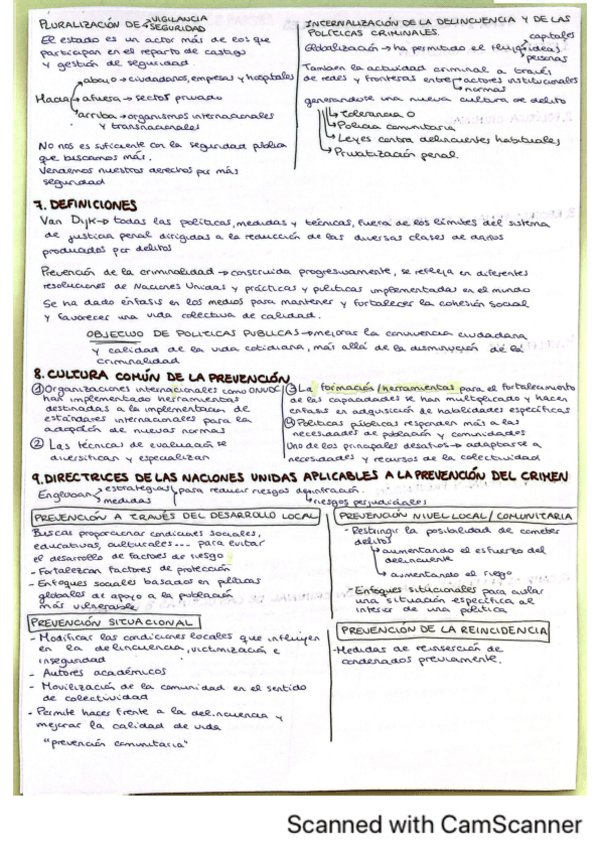 PLURALIZACIÓN DE VIGILANCIA
SEGURIDAD
El estado es un actor más de los que
participan en el reparto de castigo
y gestión de seguridad.
abajo → ciudadanos, empresas y hospitales
Hacia afuera → sector privado
arriba → organismos internacionales
y transnacionales
No nos es suficiente con la seguridad pública
que buscamos más.
Vendemos nuestros derechos por más
seguridad
INTERNALIZACIÓN DE LA DELINCUENCIA Y DE LAS
POLÍTICAS CRIMINALES.
capitales
Globalización → ha permitido el flujo → ideas
personas
También la actividad criminal a través
de redes y fronteras entre → actores institucionales
→ normas
generándose una nueva cultura de delito
→ Tolerancia 0
→ Policía comunitaria
→ Leyes contra delincuentes habituales
→ Privatización penal.
7. DEFINICIONES
Van Dijk → todas las políticas, medidas y técnicas, fuera de los límites del sistema
de justicia penal dirigidas a la reducción de las diversas clases de daños
producidos por delitos
Prevención de la criminalidad → construida progresivamente, se refleja en diferentes
resoluciones de Naciones Unidas y prácticas y políticas implementadas en el mundo
Se ha dado énfasis en los medios para mantener y fortalecer la cohesión social
y favorecer una vida colectiva de calidad.
OBJETIVO DE POLÍTICAS PÚBLICAS → mejorar la convivencia ciudadana
y calidad de la vida cotidiana, más allá de la disminución de la
criminalidad
8. CULTURA COMÚN DE LA PREVENCIÓN
① Organizaciones internacionales como ONUDC
han implementado herramientas
destinadas a la implementación de
estándares internacionales para la
adopción de nuevas normas
② Las técnicas de evaluación se
diversifican y especializan
③ La formación/herramientas para el fortalecimiento
de las capacidades se han multiplicado y hacen
énfasis en adquisición de habilidades específicas
④ Políticas públicas responden más a las
necesidades de población y comunidades
Uno de los principales desafíos → adaptarse a
necesidades y recursos de la colectividad
9. DIRECTRICES DE LAS NACIONES UNIDAS APLICABLES A LA PREVENCIÓN DEL CRIMEN
Engloban estrategias para reducir riesgos de infracción.
medidas riesgos perjudiciales
PREVENCIÓN A TRAVÉS DEL DESARROLLO LOCAL
Buscas proporcionar condiciones sociales,
educativas, culturales... para evitar
el desarrollo de factores de riesgo
- Fortalezcan factores de protección
- Enfoques sociales basados en políticas
globales de apoyo a la población
más vulnerable
PREVENCIÓN SITUACIONAL
- Modificar las condiciones locales que influyen
en la delincuencia, victimización e
inseguridad
- Autores académicos
- Movilización de la comunidad en el sentido
de colectividad
- Permite hacer frente a la delincuencia y
mejorar la calidad de vida
"prevención comunitaria"
PREVENCIÓN NIVEL LOCAL/COMUNITARIA
- Restringir la posibilidad de cometer
delitos
→ aumentando el esfuerzo del
delincuente
→ aumentando el riesgo
- Enfoques situacionales para aislar
una situación específica al
interior de una política
PREVENCIÓN DE LA REINCIDENCIA
- Medidas de reinserción de
condenados previamente.
Scanned with CamScanner